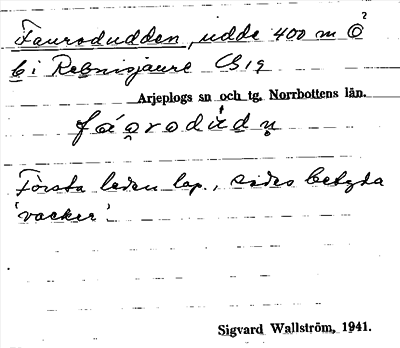 Faurodudden, udde 400 m Ö
b i Rebnisjaure C819
Arjeplogs sn och tg, Norrbottens län.
Första leden lap., sades betyda
'vacker'
Sigvard Wallström, 1941.